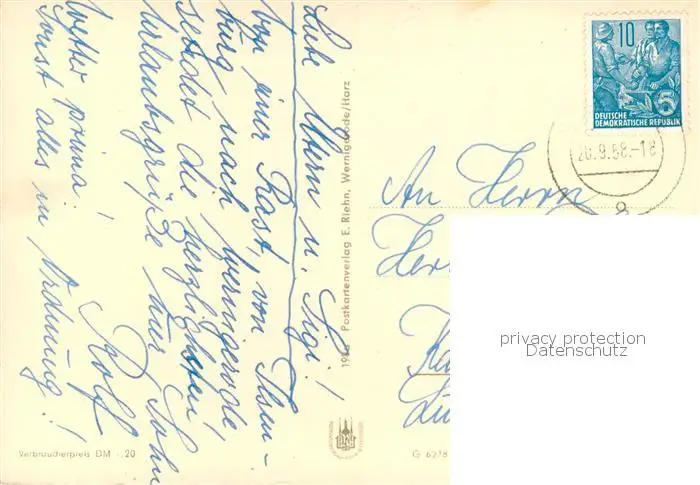 Liebe Eltern u. Sigi!
Von einer Rast, von Ilsen-
burg nach Wernigerode
sendet die herzlichsten
Urlaubsgrüße euer Sohn
Rolf
Wetter prima!
Sonst alles in Ordnung!
Verbraucherpreis DM -.20
Postkartenverlag E. Riehn, Wernigerode/Harz
G 6278
10
DEUTSCHE
DEMOKRATISCHE REPUBLIK
26.9.58.-18
An Herrn
privacy protection
Datenschutz